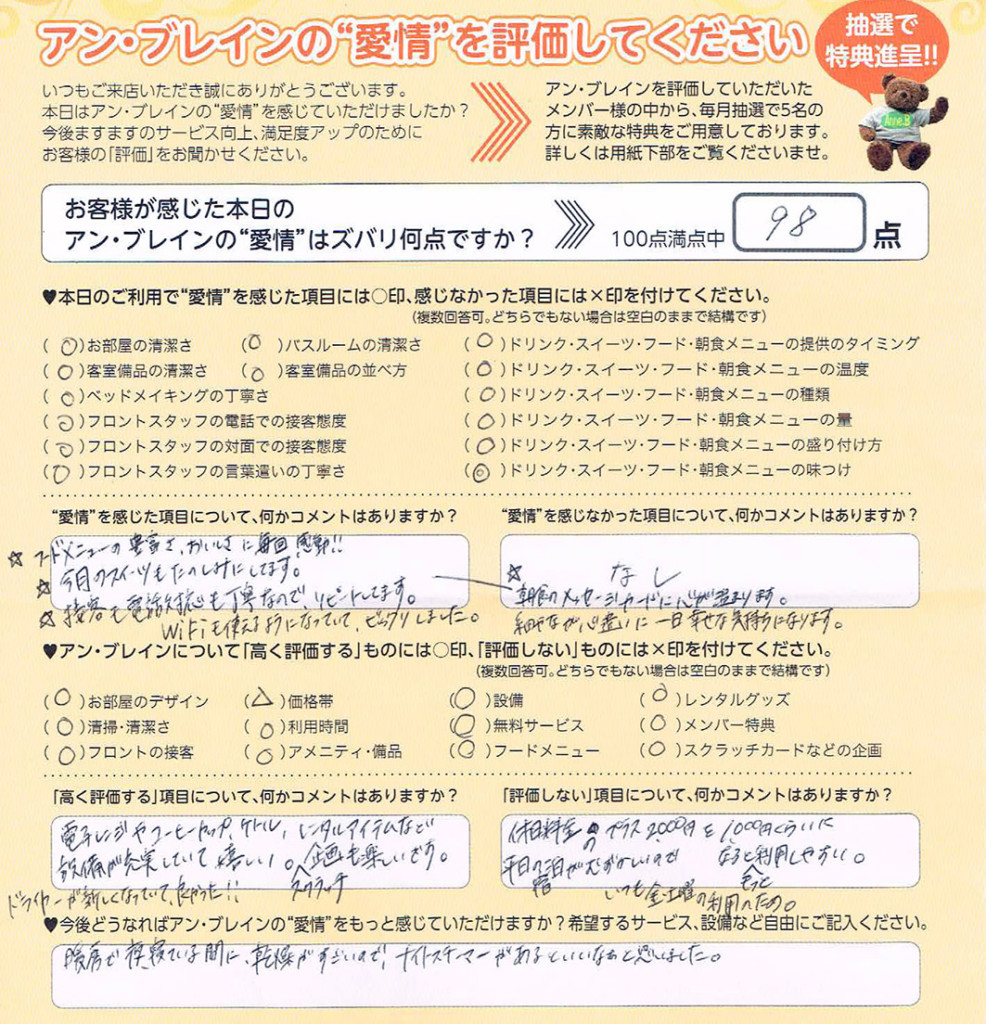 アン・ブレインの“愛情”を評価してください
抽選で
特典進呈!!
いつもご来店いただき誠にありがとうございます。
本日はアン・ブレインの“愛情”を感じていただけましたか?
今後ますますのサービス向上、満足度アップのために
お客様の「評価」をお聞かせください。
アン・ブレインを評価していただいた
メンバー様の中から、毎月抽選で5名の
方に素敵な特典をご用意しております。
詳しくは用紙下部をご覧くださいませ。
お客様が感じた本日の
アン・ブレインの“愛情”はズバリ何点ですか?
100点満点中 98 点
♥本日のご利用で“愛情”を感じた項目には○印、感じなかった項目には×印を付けてください。
(複数回答可。どちらでもない場合は空白のままで結構です)
(○)お部屋の清潔さ (○)バスルームの清潔さ (○)ドリンク・スイーツ・フード・朝食メニューの提供のタイミング
(○)客室備品の清潔さ (○)客室備品の並べ方 (○)ドリンク・スイーツ・フード・朝食メニューの温度
(○)ベッドメイキングの丁寧さ (○)ドリンク・スイーツ・フード・朝食メニューの種類
(○)フロントスタッフの電話での接客態度 (○)ドリンク・スイーツ・フード・朝食メニューの量
(○)フロントスタッフの対面での接客態度 (○)ドリンク・スイーツ・フード・朝食メニューの盛り付け方
(○)フロントスタッフの言葉遣いの丁寧さ (◎)ドリンク・スイーツ・フード・朝食メニューの味つけ
“愛情”を感じた項目について、何かコメントはありますか?
☆フードメニューの豊富さ、おいしさに毎回感動!!
☆今月のスイーツもたのしみにしてます。
☆接客も電話対応も丁寧なので、リピートしてます。
WiFiも使えるようになっていて、ビックリしました。
“愛情”を感じなかった項目について、何かコメントはありますか?
なし
☆朝食のメッセージカードに心が温まります。
細やかな心遣いに一日幸せな気持ちになります。
♥アン・ブレインについて「高く評価する」ものには○印、「評価しない」ものには×印を付けてください。
(複数回答可。どちらでもない場合は空白のままで結構です)
(○)お部屋のデザイン (△)価格帯 (○)設備 (○)レンタルグッズ
(○)清掃・清潔さ (○)利用時間 (○)無料サービス (○)メンバー特典
(○)フロントの接客 (○)アメニティ・備品 (○)フードメニュー (○)スクラッチカードなどの企画
「高く評価する」項目について、何かコメントはありますか?
電子レンジやコーヒーカップ、ケトル、レンタルアイテムなど
設備が充実していて嬉しい。企画も楽しいです。
スクラッチ
ドライヤーが新しくなっていて、良かった!!
「評価しない」項目について、何かコメントはありますか?
休日料金のプラス2000円を1000円くらいに
平日の宿泊がむずかしいので なると利用しやすい。
もっと
いつも金・土曜の利用のため。
♥今後どうなればアン・ブレインの“愛情”をもっと感じていただけますか?希望するサービス、設備など自由にご記入ください。
暖房で寝ている間に、乾燥がすごいので、ナイトスチーマーがあるといいなぁと思いました。